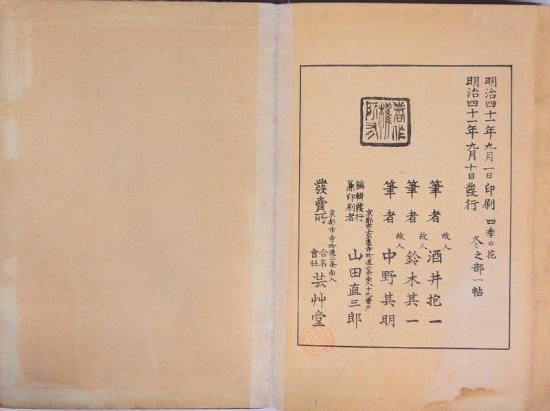 明治四十一年九月一日印刷 四季の花
明治四十一年九月十日發行 冬之部一帖
著作權所有
筆者 故人 酒井抱一
筆者 故人 鈴木其一
筆者 故人 中野其明
編輯發行
兼印刷者
山田直三郎
發賣所
京都市寺町通二条南入
合名
會社
芸艸堂